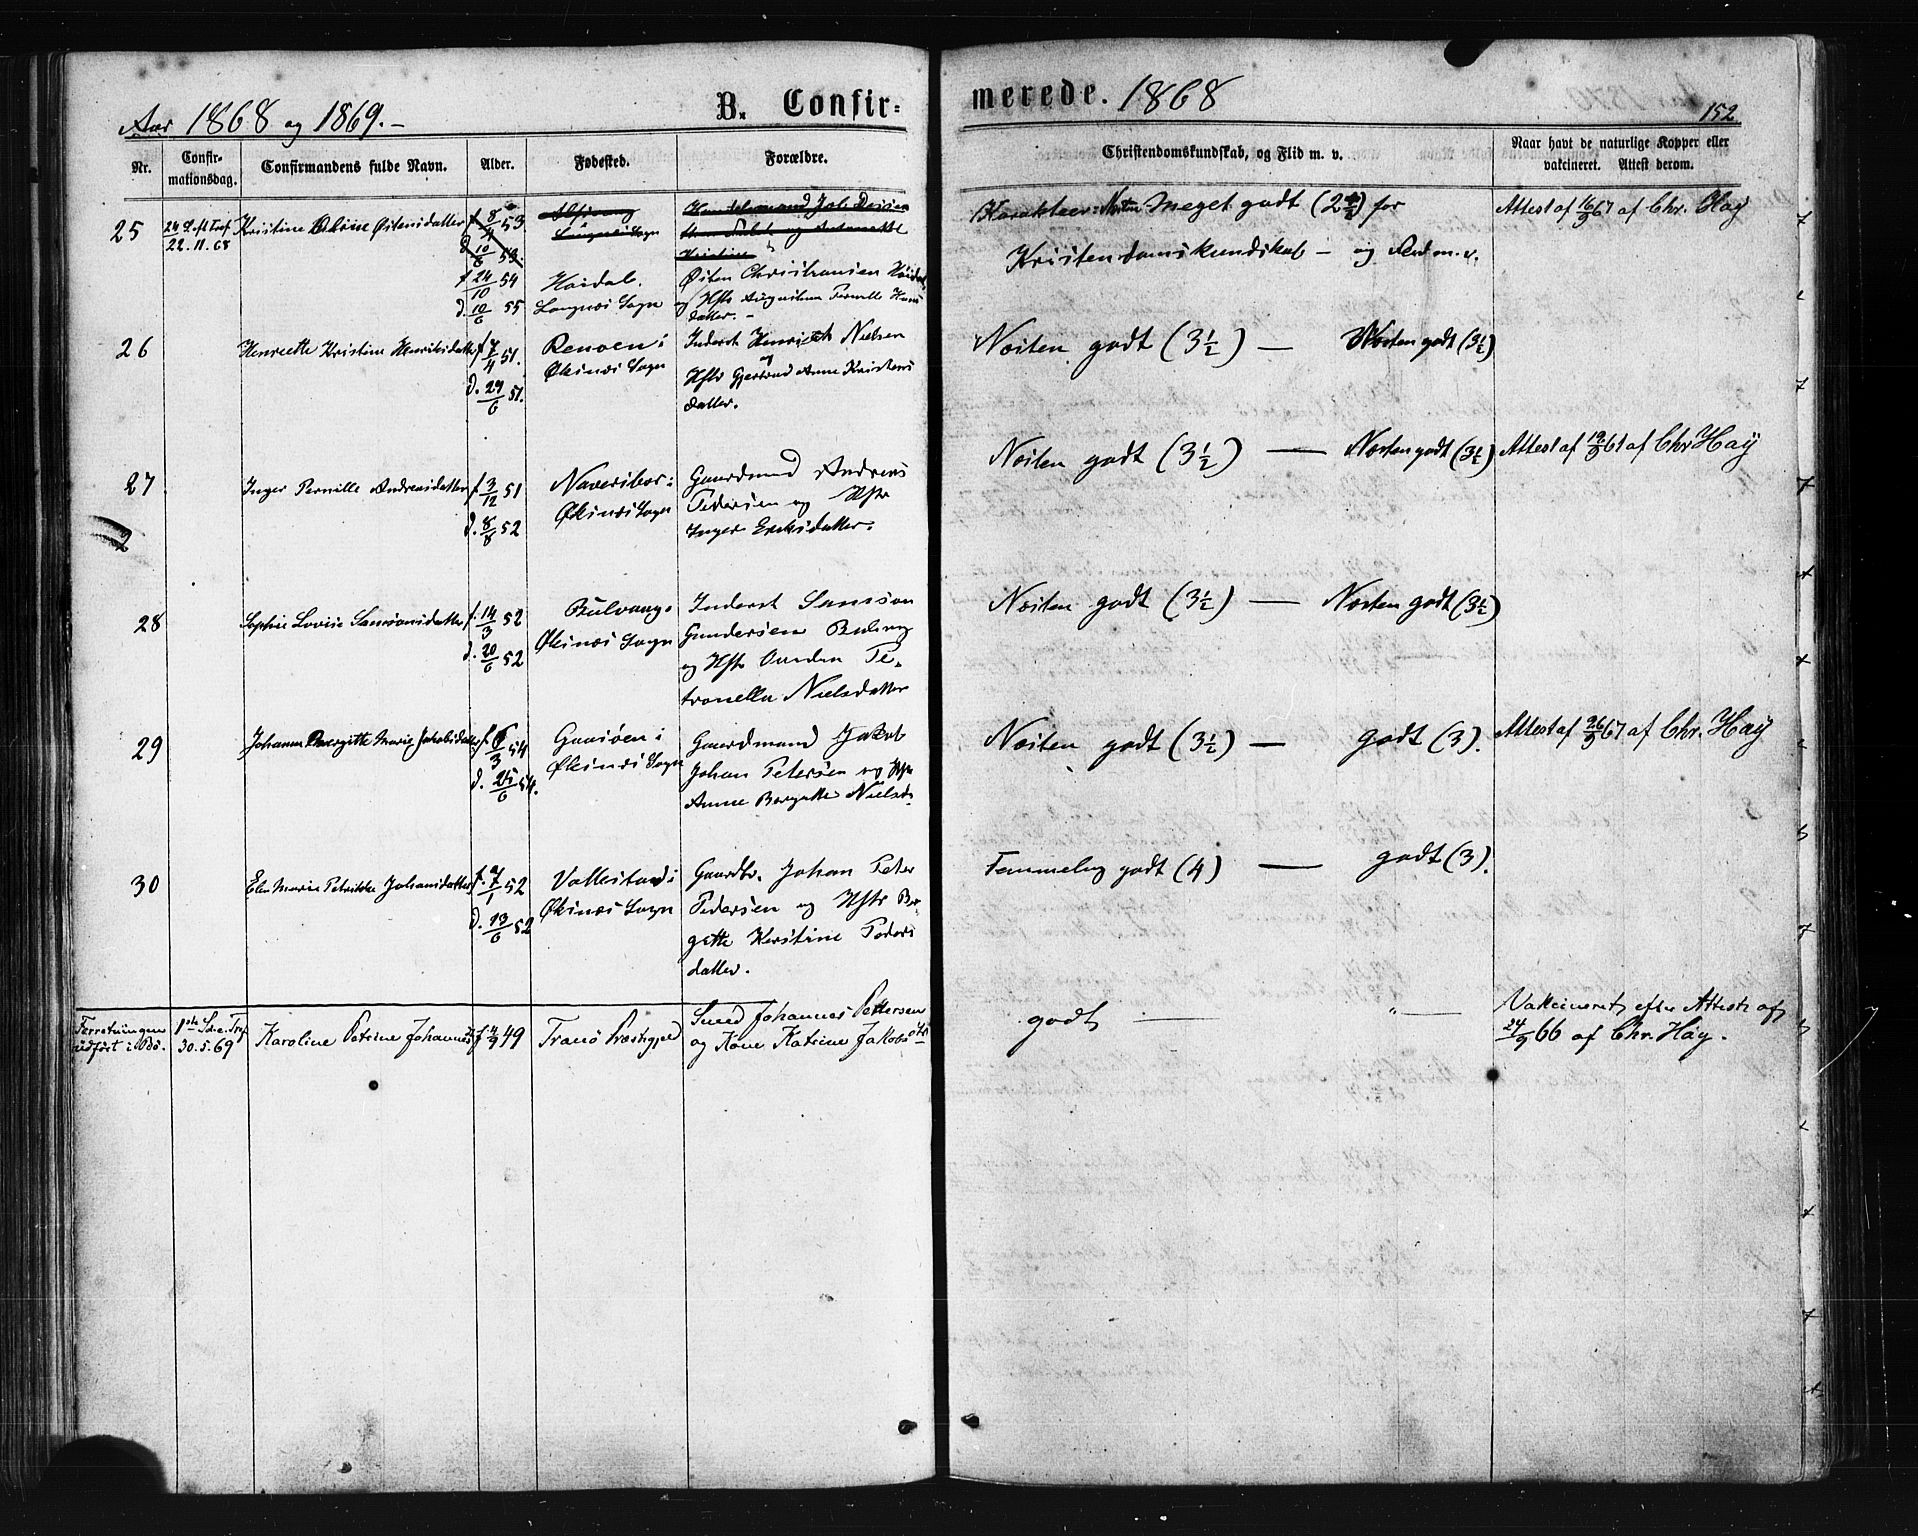 Aar 1868 og 1869.-
B. Confir-
merede. 1868
152
Nr.
Confir-
mationsdag.
Confirmandens fulde Navn.
Alder.
Fødested.
Forældre.
Christendomskundskab, og Flid m. v.
Naar havt de naturlige Kopper eller
vakcineret. Attest derom.
25
24 S. eft Tref.
22.11.68
Kristine Østensdatter
f. 8/4 53
d. 10/6 53.
f 24/10 54
d. 10/6 55
Langnæs Sogn
Høidal.
Langnæs Sogn
Kristine
Østen Christiansen Høidal,
og Hstr Augustina Pernille Hans
datter. -
Karakteer: Meget godt (2) for
Kristendomskundskab - og Flid m. v.
Attest af 16/9 67 af Chr. Hay
26
Henriette Kristine Henriksdatter
f 7/4 51.
d. 29/6 51.
Renøen i
Øksnæs Sogn
Inderst Henrich Nielsen
og
Hstr Gjertrud Anne Kristens
datter.
Næsten godt (3½) — Næsten godt (3½)
27
Inger Pernille Andreasdatter
f 3/12 51
d. 8/8 52
Øksnæs Sogn
Gaardmand Andreas
Pedersen og Hstr
Inger Eriksdatter.
Næsten godt (3½) — Næsten godt (3½)
Attest af 19/9 61 af Chr Hay
2
28
Sophie Lovise Samsonsdatter
f. 14/3 52
d. 20/6 52
Øksnæs Sogn
Inderst Samson
Gundersen
og Hstr Pe-
tronella Nielsdatter
Næsten godt (3½) — Næsten godt (3½)
29
Johanna Bergitte Marie Jakobsdatter
f. 6/3 54
d. 25/6 54.
Gaasøen i
Øksnæs Sogn
Gaardmand Jakob
Johan Petersen og Hstr
Anne Bergitte Nielsd.
Næsten godt (3½) — godt (3).
Attest af 26/9 67 af Chr. Hay
30
Elen Marie Petrikke Johansdatter
f. 7/1 52
d. 13/6 52
Øksnæs Sogn
Gaardbr. Johan Peter
Pedersen og Hstr Ber-
gitte Kerstine Peders
datter.
Temmelig godt (4) — godt (3).
Forretningen
udført i Bø.
1ste S. e. Tref
30.5.69
Karoline Petrine Johannesd
f 4/9 49
Tranø Præstegjeld
Smed Johannes Pettersen
og Kone Katrine Jakobsdtr
godt — " —
Vakcineret efter Attest af
24/9 66 af Chr. Hay.